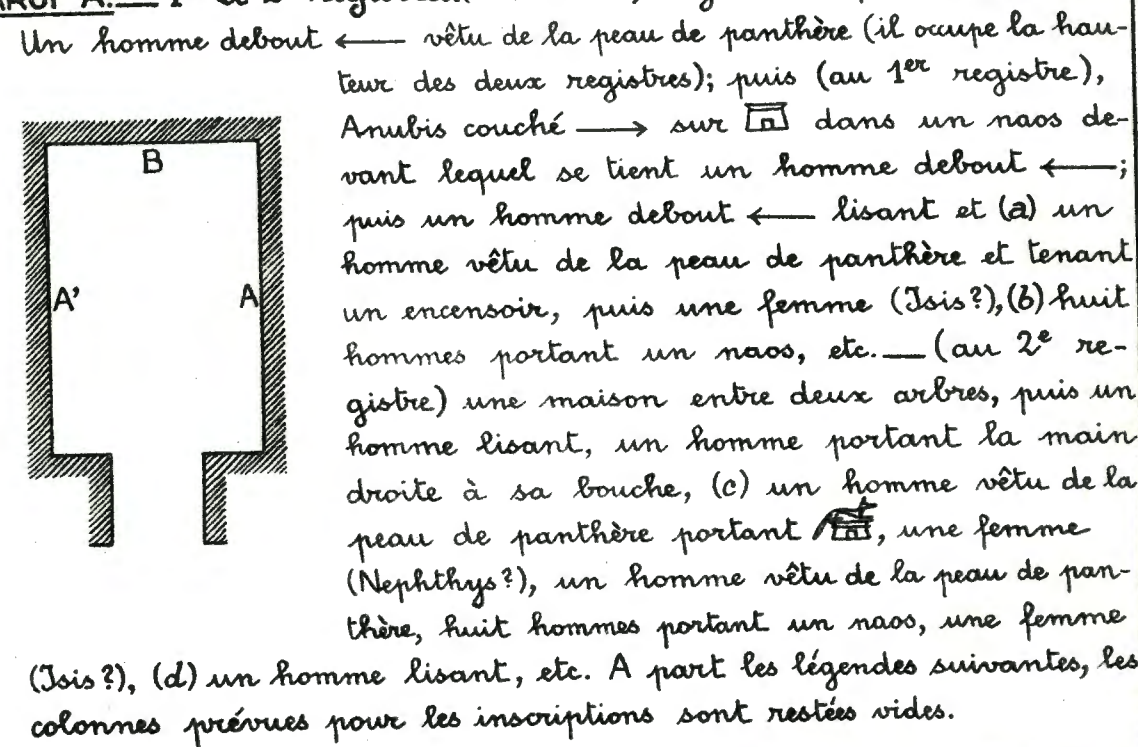 Un homme debout ← vêtu de la peau de panthère (il occupe la hau-
teur des deux registres); puis (au 1er registre),
Anubis couché → sur dans un naos de-
vant lequel se tient un homme debout ←;
puis un homme debout ← lisant et (a) un
homme vêtu de la peau de panthère et tenant
un encensoir, puis une femme (Isis?), (b) huit
hommes portant un naos, etc. — (au 2e re-
gistre) une maison entre deux arbres, puis un
homme lisant, un homme portant la main
droite à sa bouche, (c) un homme vêtu de la
peau de panthère portant , une femme
(Nephthys?), un homme vêtu de la peau de pan-
thère, huit hommes portant un naos, une femme
(Isis?), (d) un homme lisant, etc. A part les légendes suivantes, les
colonnes prévues pour les inscriptions sont restées vides.
B
A'
A